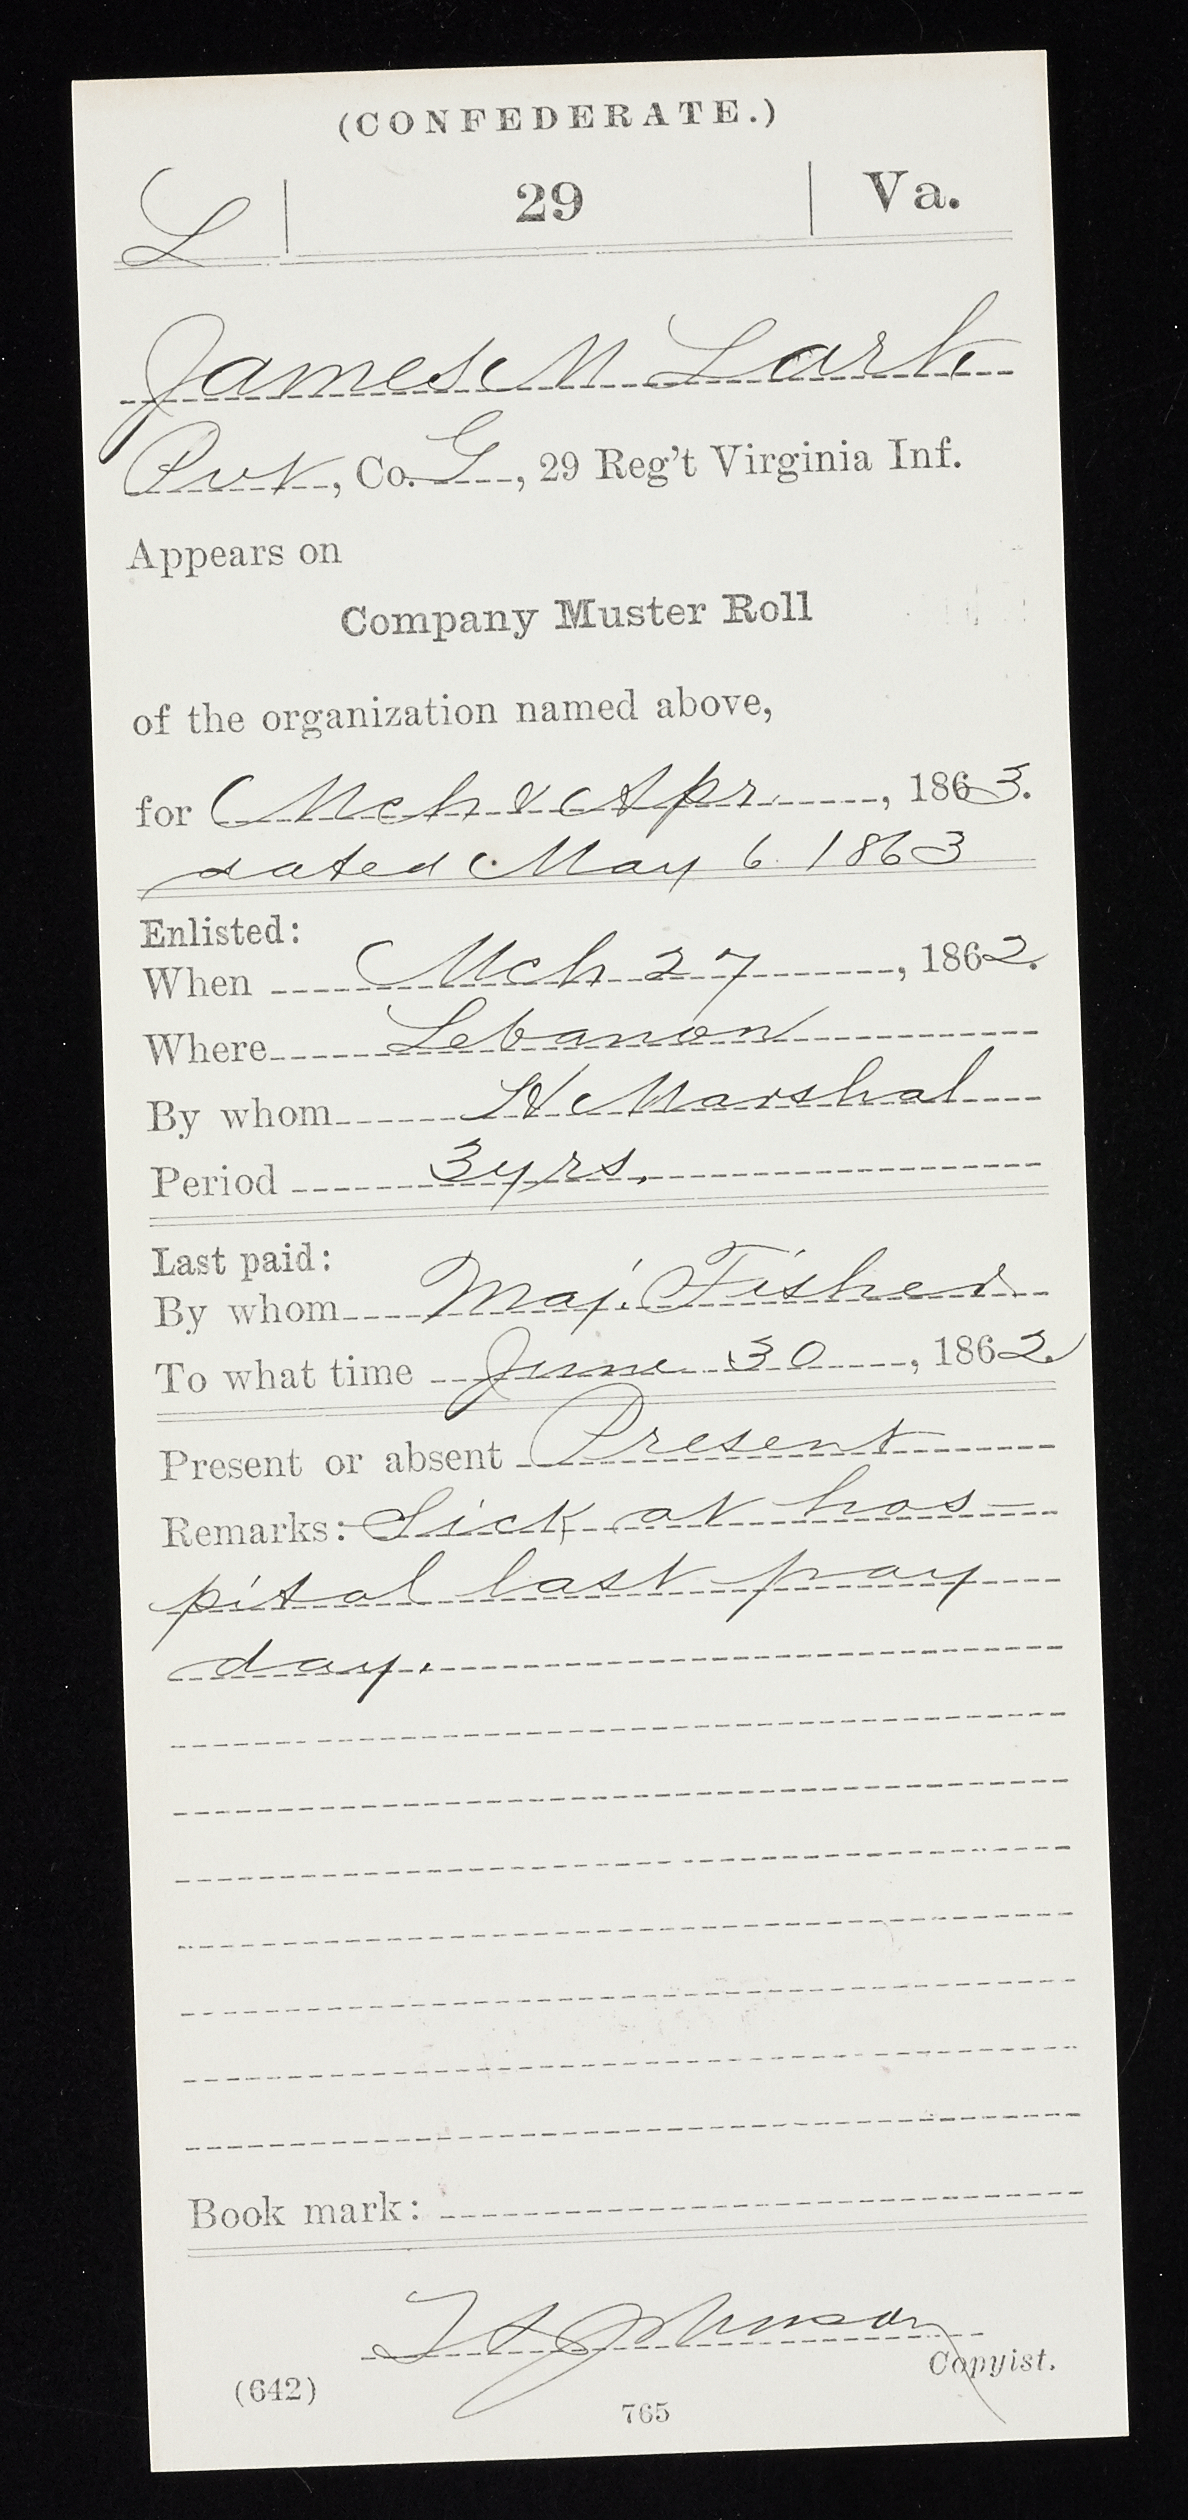 (CONFEDERATE.)
L | 29 | Va.
James M Lark
Pvt, Co. G, 29 Reg't Virginia Inf.
Appears on
Company Muster Roll
of the organization named above,
for Mch & Apr, 1863.
dated May 6 1863
Enlisted:
When Mch 27, 1862.
Where Lebanon
By whom Marshal
Period 3 yrs.
Last paid:
By whom Maj. Fisher
To what time June 30, 1862.
Present or absent Present
Remarks: Sick at hos-
pital last pay
day.
Book mark:
Johnson
Copyist.
(642)
765